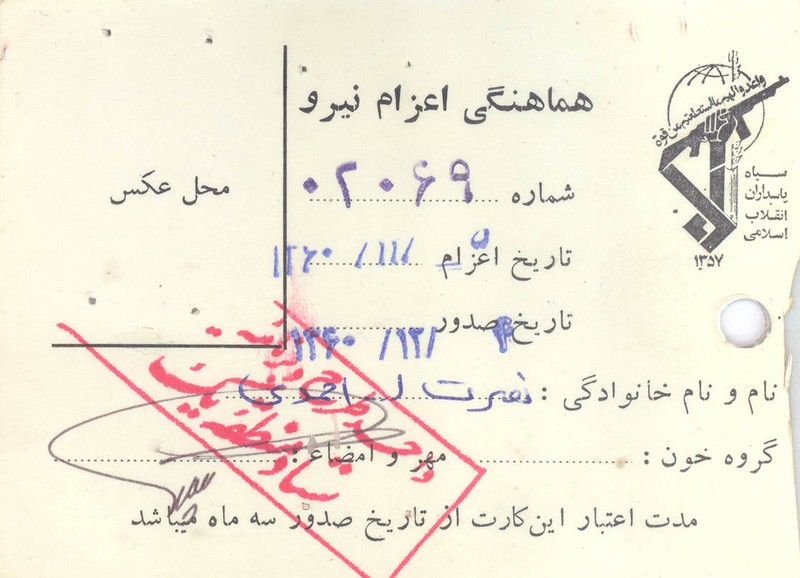 هماهنگی اعزام نیرو
واعدوا لهم ما استطعتم من قوة
سپاه
پاسداران
انقلاب
اسلامی
۱۳۵۷
محل عکس
شماره ۰۲۰۶۹
تاریخ اعزام ۵ /۱۱/ ۱۳۶۰
تاریخ صدور ۴ /۱۲/ ۱۳۶۰
نام و نام خانوادگی : نصرت ا... احمدی
گروه خون : مهر و امضاء :
مدت اعتبار این کارت از تاریخ صدور سه ماه میباشد